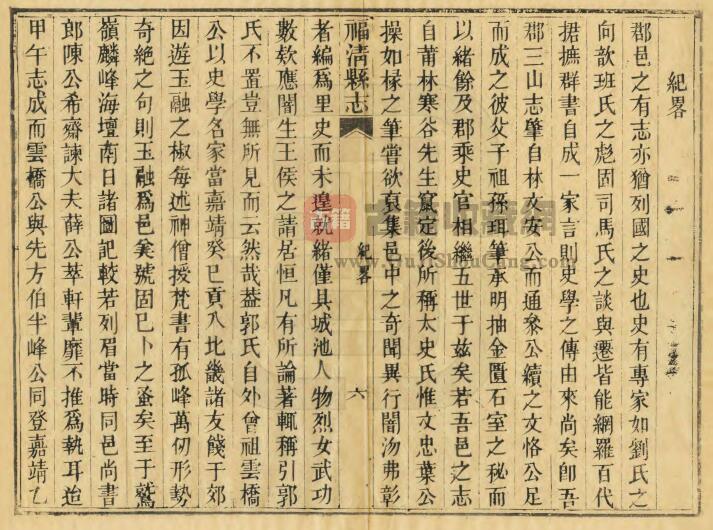 紀畧
郡邑之有志亦猶列國之史也史有專家如劉氏之
向歆班氏之彪固司馬氏之談與遷皆能網羅百代
据摭群書自成一家言則史學之傳由來尚矣卽吾
郡三山志肇自林文安公而通叅公續之文恪公足
而成之彼父子祖孫珥筆承明抽金匱石室之秘而
以緒餘及郡乘史官相繼五世于兹矣若吾邑之志
自莆林寒谷先生竄定後所稱太史氏惟文忠葉公
操如椽之筆嘗欲裒集邑中之奇聞異行闇沕弗彰
福清縣志
紀畧
六
者編爲里史而未遑就緒僅具城池人物烈女武功
數欵應閣生王侯之請居恒凡有所論著輒稱引郭
氏不置豈無所見而云然哉葢郭氏自外曾祖雲橋
公以史學名家當嘉靖癸巳貢入北畿諸友餞于郊
因遊玉融之椒每述神僧授梵書有孤峰萬仞形勢
奇絶之句則玉融爲邑矣號固已卜之蚤矣至于鷲
嶺麟峰海壇南日諸圖記較若列眉當時同邑尚書
郎陳公希齋諫大夫薛公萃軒輩靡不推爲執耳迨
甲午志成而雲橋公與先方伯半峰公同登嘉靖乙
古籍
古籍收藏网
www.GujiShouCang.com